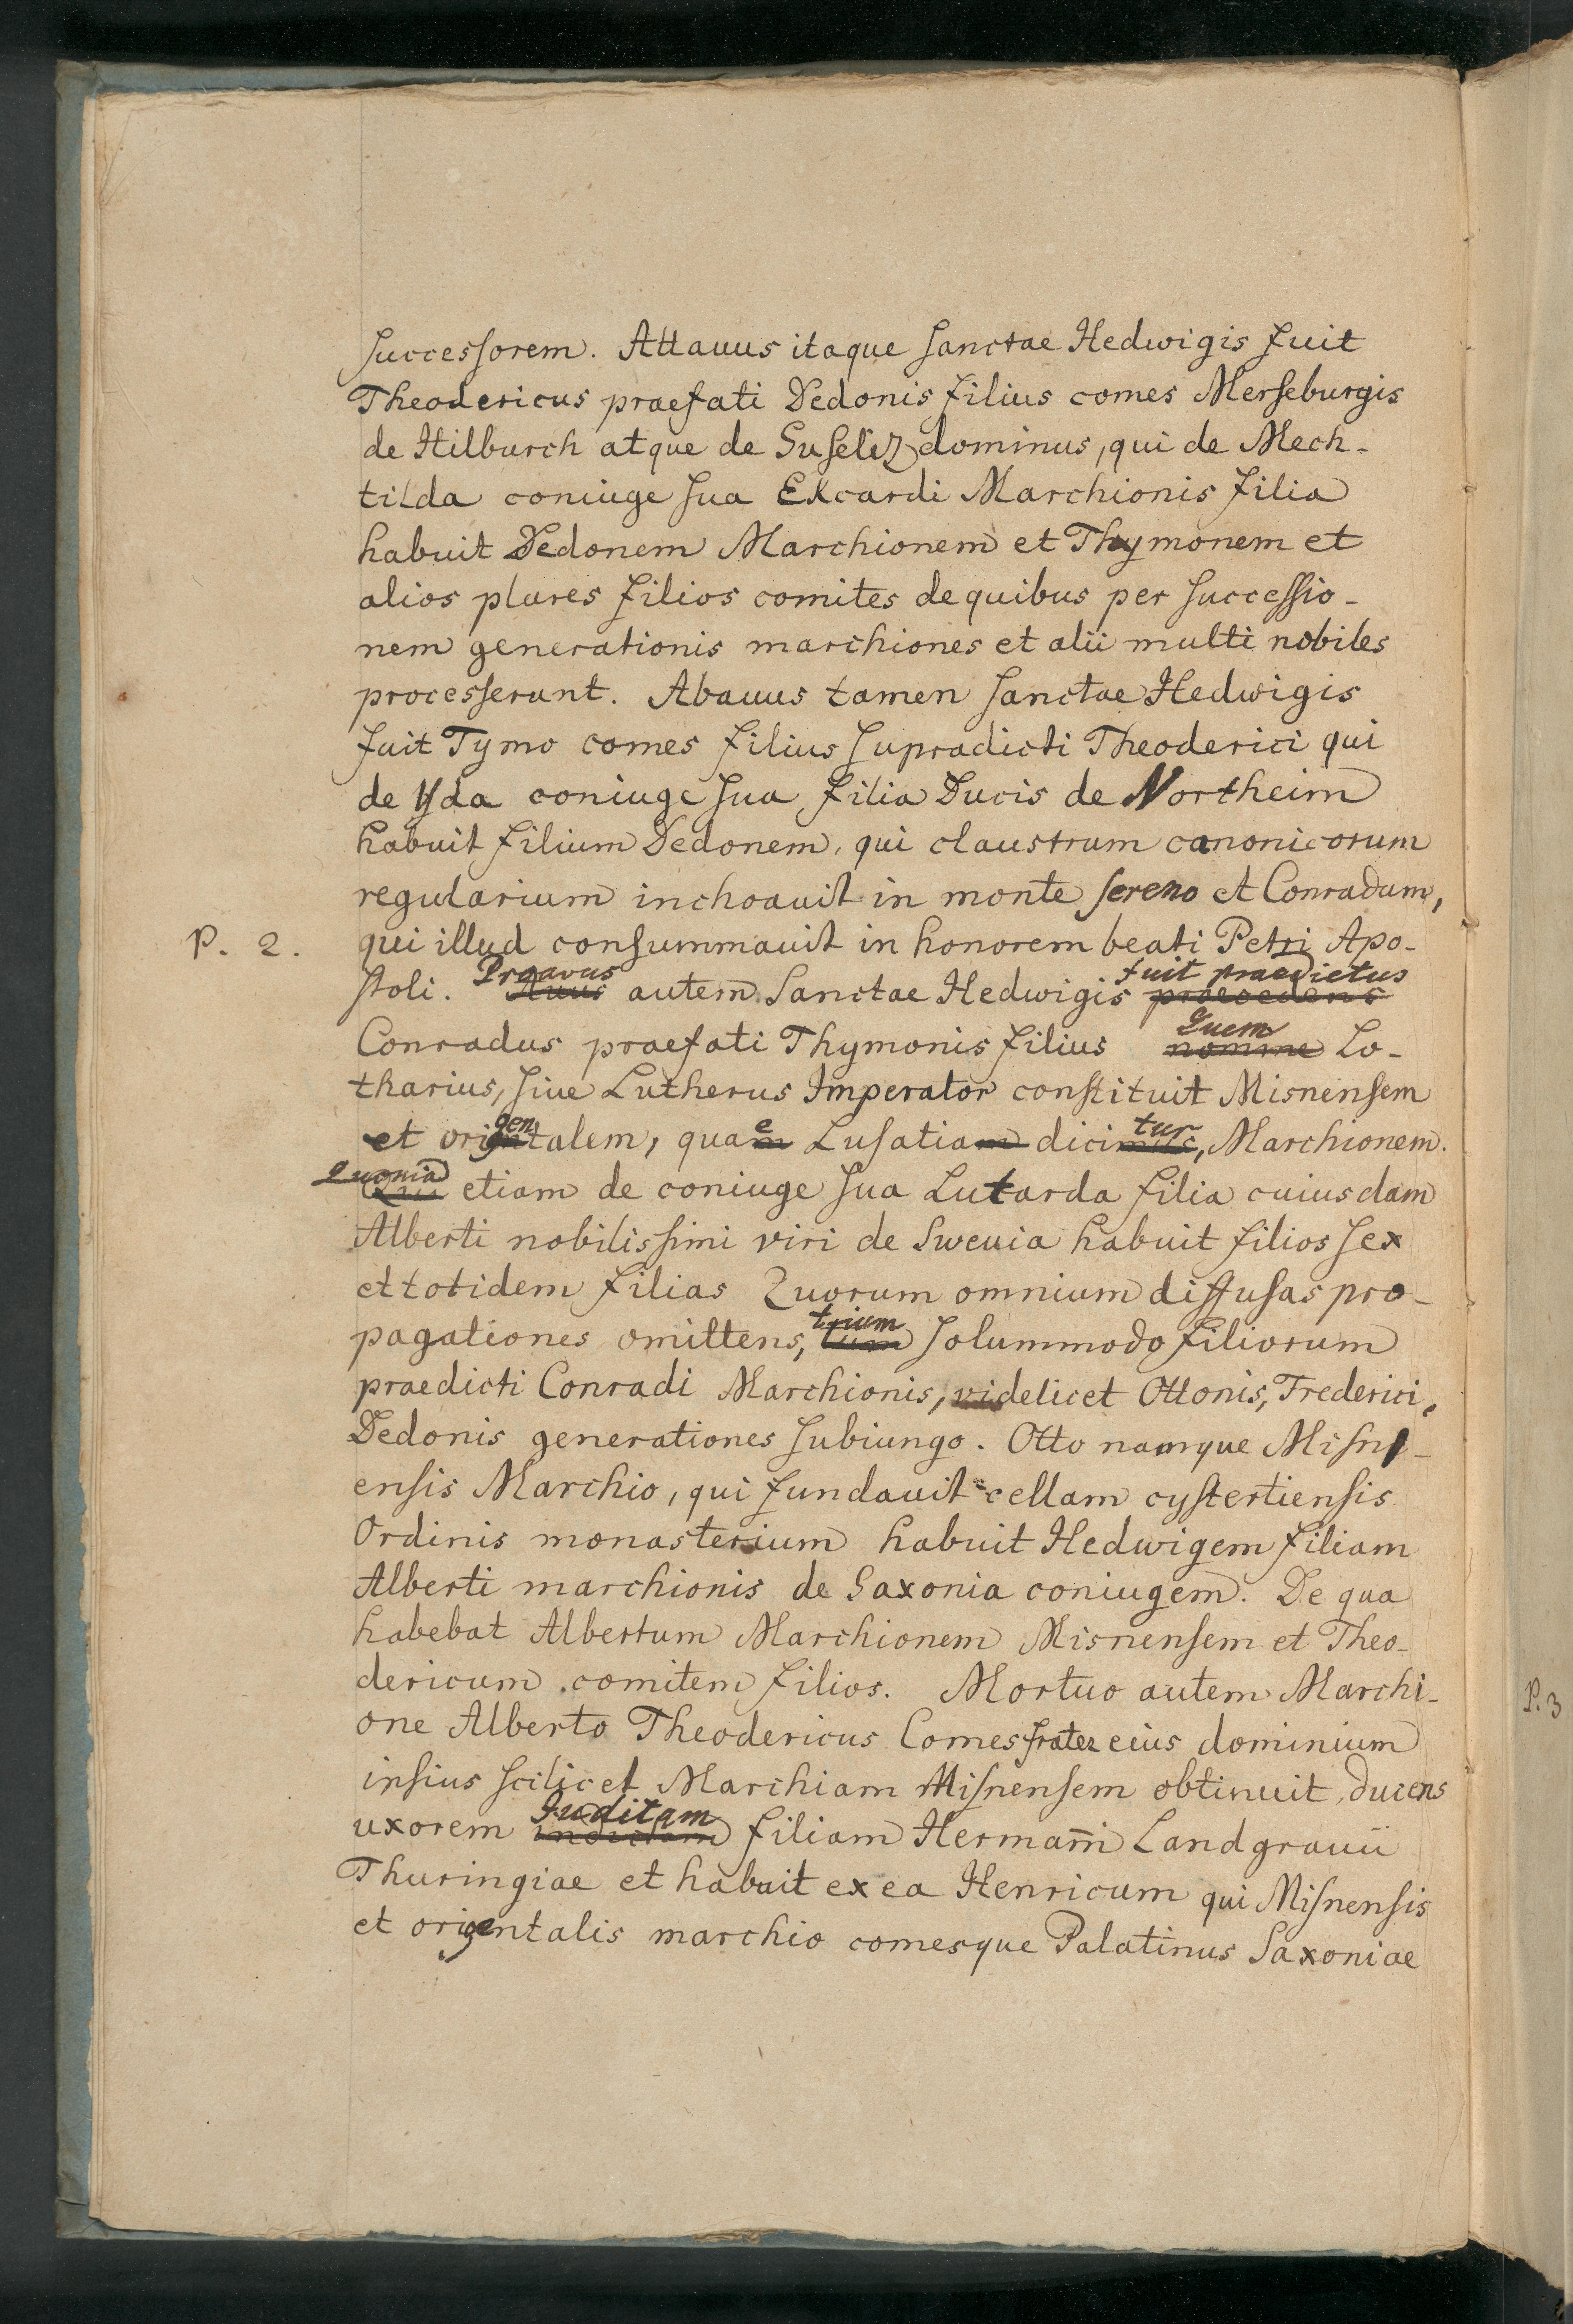 successorem. Attauus itaque sanctae Hedwigis fuit
Theodericus praefati Dedonis filius comes Merseburgis
de Hilburch atque de Suseliz dominus, qui de Mech-
tilda coniuge sua Ekcardi Marchionis filia
habuit Dedonem Marchionem et Thymonem et
alios plures filios comites de quibus per successio-
nem generationis marchiones et alii multi nobiles
processerunt. Abauus tamen sanctae Hedwigis
fuit Tymo comes filius supradicti Theoderici qui
de Yda coniuge sua filia Ducis de Northeim
habuit filium Dedonem, qui claustrum canonicorum
regularium inchoauit in monte sereno et Conradum,
P. 2. qui illud consummauit in honorem beati Petri Apo-
Proavus fuit praedictus
stoli. Auus autem Sanctae Hedwigis praecedens
Quem
Conradus praefati Thymonis filius nomine Lo-
tharius, siue Lutherus Imperator constituit Misnensem
et origentalem, quae Lusatia dicitur, Marchionem.
Quonia
Qui etiam de coniuge sua Lutarda filia cuiusdam
Alberti nobilissimi viri de Sweuia habuit filios sex
et totidem filias Quorum omnium diffusas pro-
trium
pagationes omittens, tum solummodo filiorum
praedicti Conradi Marchionis, videlicet Ottonis, Frederici,
Dedonis generationes subiungo. Otto namque Misn-
ensis Marchio, qui fundauit cellam cystertiensis
Ordinis monasterium habuit Hedwigem filiam
Alberti marchionis de Saxonia coniugem. De qua
habebat Albertum Marchionem Misnensem et Theo-
dericum comitem filios. Mortuo autem Marchi-
one Alberto Theodericus Comes frater eius dominium
insius scilicet Marchiam Misnensem obtinuit, ducens
Juditam
uxorem filiam Hermanni Landgrauii
Thuringiae et habuit ex ea Henricum qui Misnensis
et origentalis marchio comesque Palatinus Saxoniae
P. 3